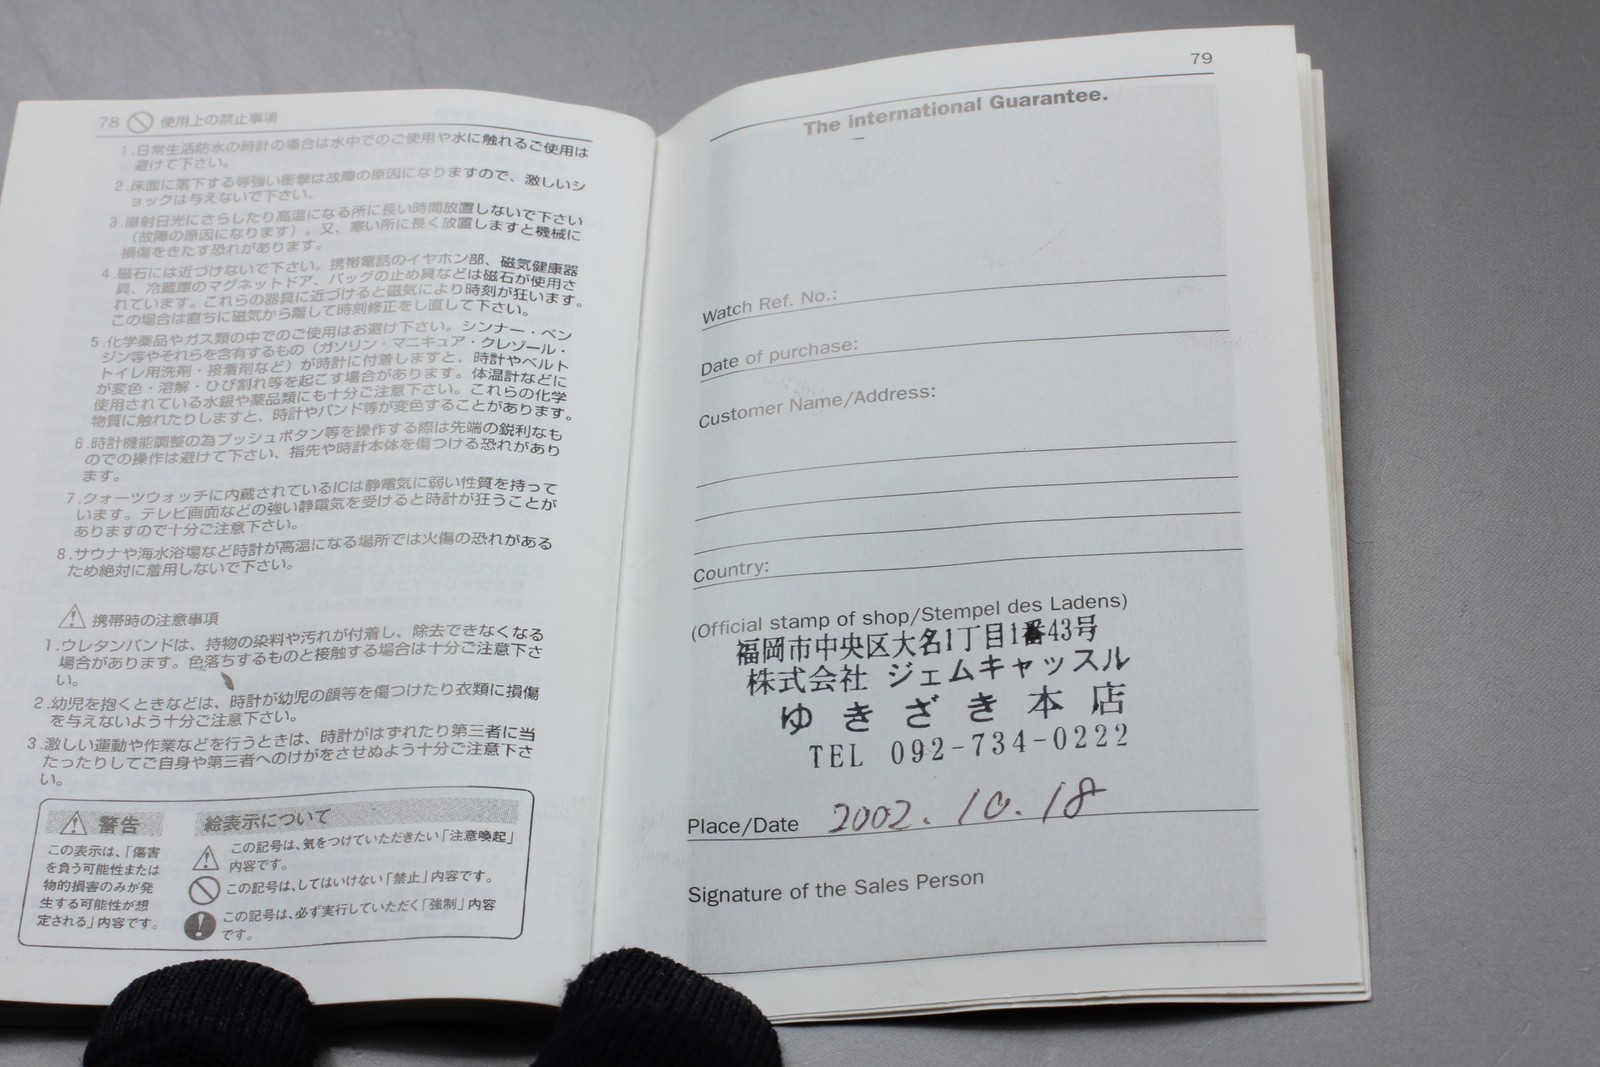 78 使用上の禁止事項
1.日常生活防水の時計の場合は水中でのご使用や水に触れるご使用は
避けて下さい。
2.床面に落下する等強い衝撃は故障の原因になりますので、激しいシ
ョックは与えないで下さい。
3.直射日光にさらしたり高温になる所に長い時間放置しないで下さい
（故障の原因になります）。又、寒い所に長く放置しますと機械に
損傷をきたす恐れがあります。
4.磁石には近づけないで下さい。携帯電話のイヤホン部、磁気健康器
具、冷蔵庫のマグネットドア、バッグの止め具などは磁石が使用さ
れています。これらの器具に近づけると磁気により時刻が狂います。
この場合は直ちに磁気から離して時刻修正をし直して下さい。
5.化学薬品やガス類の中でのご使用はお避け下さい。シンナー・ベン
ジン等やそれらを含有するもの（ガソリン・マニキュア・クレゾール・
トイレ用洗剤・接着剤など）が時計に付着しますと、時計やベルト
が変色・溶解・ひび割れ等を起こす場合があります。体温計などに
使用されている水銀や薬品類にも十分ご注意下さい。これらの化学
物質に触れたりしますと、時計やバンド等が変色することがあります。
6.時計機能調整の為プッシュボタン等を操作する際は先端の鋭利なも
のでの操作は避けて下さい、指先や時計本体を傷つける恐れがあり
ます。
7.クォーツウォッチに内蔵されているICは静電気に弱い性質を持って
います。テレビ画面などの強い静電気を受けると時計が狂うことが
ありますので十分ご注意下さい。
8.サウナや海水浴場など時計が高温になる場所では火傷の恐れがある
ため絶対に着用しないで下さい。
携帯時の注意事項
1.ウレタンバンドは、持物の染料や汚れが付着し、除去できなくなる
場合があります。色落ちするものと接触する場合は十分ご注意下さ
い。
2.幼児を抱くときなどは、時計が幼児の顔等を傷つけたり衣類に損傷
を与えないよう十分ご注意下さい。
3.激しい運動や作業などを行うときは、時計がはずれたり第三者に当
たったりしてご自身や第三者へのけがをさせぬよう十分ご注意下さ
い。
警告
この表示は、「傷害
を負う可能性または
物的損害のみが発
生する可能性が想
定される」内容です。
絵表示について
この記号は、気をつけていただきたい「注意喚起」
内容です。
この記号は、してはいけない「禁止」内容です。
この記号は、必ず実行していただく「強制」内容
です。
79
The international Guarantee.
Watch Ref. No.:
Date of purchase:
Customer Name/Address:
Country:
(Official stamp of shop/Stempel des Ladens)
福岡市中央区大名1丁目1番43号
株式会社 ジェムキャッスル
ゆきざき本店
TEL 092-734-0222
Place/Date 2002.10.18
Signature of the Sales Person